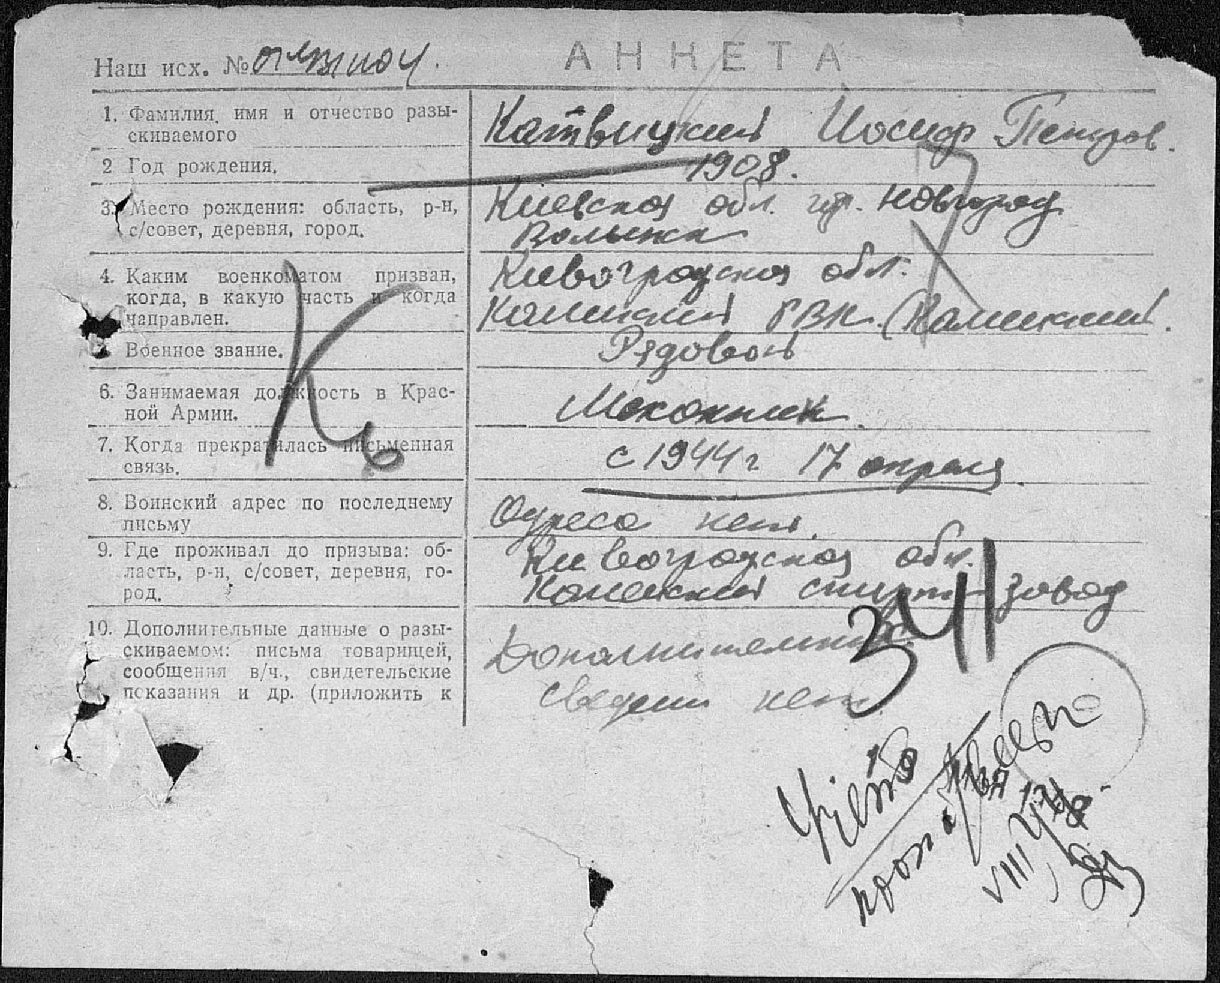 АНКЕТА
Наш исх. №
1. Фамилия, имя и отчество разы-
скиваемого
Катвицкий Иосиф Петров.
2 Год рождения.
1908.
3. Место рождения: область, р-н,
с/совет, деревня, город.
Киевская обл. гор. Новгород
Волынск
4. Каким военкоматом призван,
когда, в какую часть и когда
направлен.
Кивоградская обл.
РВК.
Военное звание.
Рядовой
6. Занимаемая должность в Крас-
ной Армии.
7. Когда прекратилась письменная
связь.
с 1944 г 17 апреля.
8. Воинский адрес по последнему
письму
Адреса нет.
9. Где проживал до призыва: об-
ласть, р-н, с/совет, деревня, го-
род.
Кивоградская обл.
спирт-завод
10. Дополнительные данные о разы-
скиваемом: письма товарищей,
сообщения в/ч., свидетельские
показания и др. (приложить к
Дополнительных
сведени нет.
К6
341
VIII